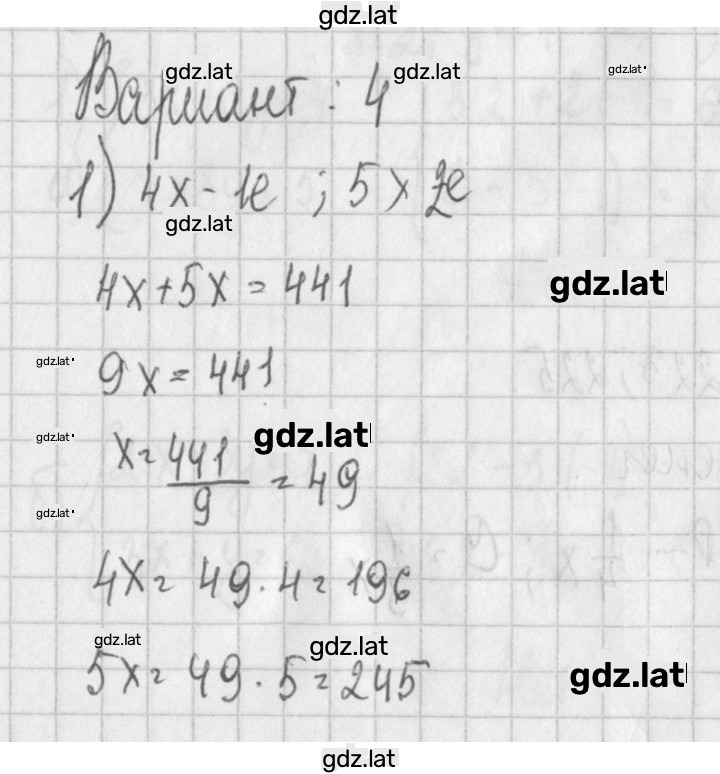 gdz.lat
Вариант : 4
gdz.lat gdz.lat gdz.lat
1) 4x - 1е ; 5x 2е
gdz.lat
4x + 5x = 441
gdz.lat
gdz.lat
9x = 441
gdz.lat
gdz.lat
x = 441/9 = 49
gdz.lat
4x = 49 · 4 = 196
gdz.lat gdz.lat
5x = 49 · 5 = 245
gdz.lat
gdz.lat